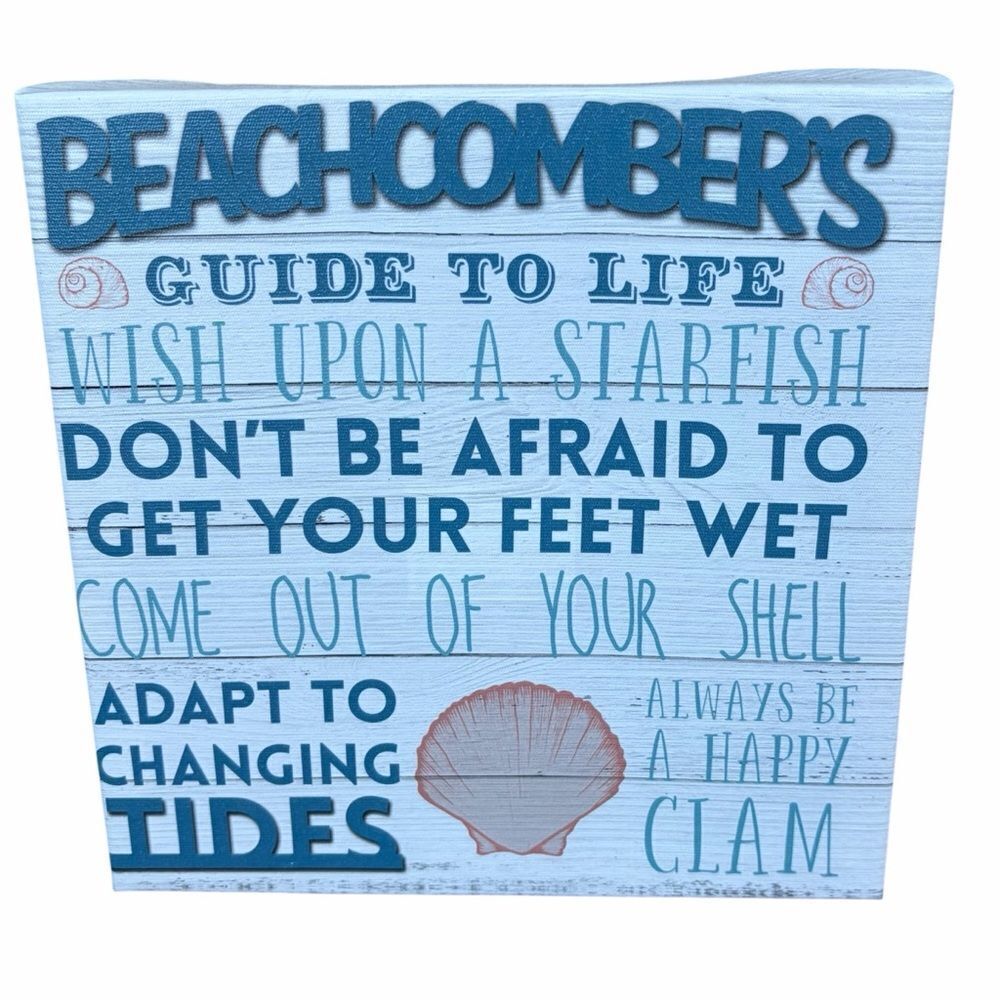 BEACHCOMBER'S
GUIDE TO LIFE
WISH UPON A STARFISH
DON'T BE AFRAID TO
GET YOUR FEET WET
COME OUT OF YOUR SHELL
ADAPT TO
CHANGING
TIDES
ALWAYS BE
A HAPPY
CLAM